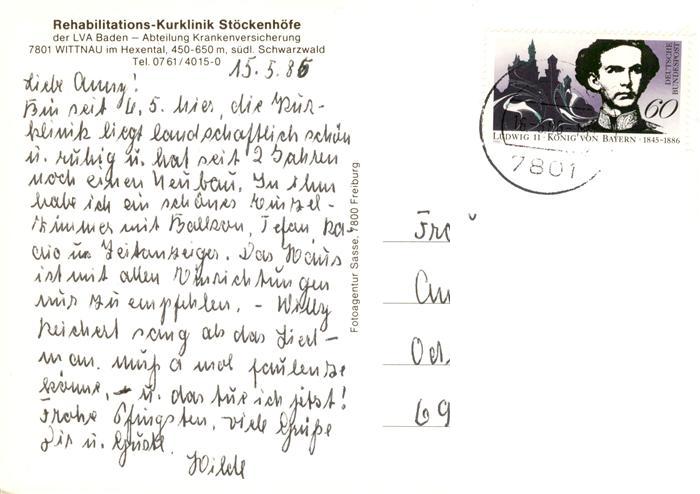 Rehabilitations-Kurklinik Stöckenhöfe
der LVA Baden – Abteilung Krankenversicherung
7801 WITTNAU im Hexental, 450-650 m, südl. Schwarzwald
Tel. 0761/4015-0
15.5.86
Liebe Anny!
Bin seit 4.5. hier, die Kur-
klinik liegt landschaftlich schön
u. ruhig u. hat seit 2 Jahren
noch einen Neubau. In ihm
habe ich ein schönes Einzel-
zimmer mit Balkon, Telefon, Ra-
dio u. Zeitanzeiger. Das Haus
ist mit allen Einrichtungen
nur zu empfehlen. – Willy
Reichert sang als das Lied –
man muß a mol faulenze
könne, – u. das tue ich jetzt!
Frohe Pfingsten, viele Grüße
Dir u. Gustl.
Hilde
Fotoagentur Sasse, 7800 Freiburg
DEUTSCHE
BUNDESPOST
60
LUDWIG II · KÖNIG VON BAYERN · 1845-1886
7801
Fr
An
Od
69